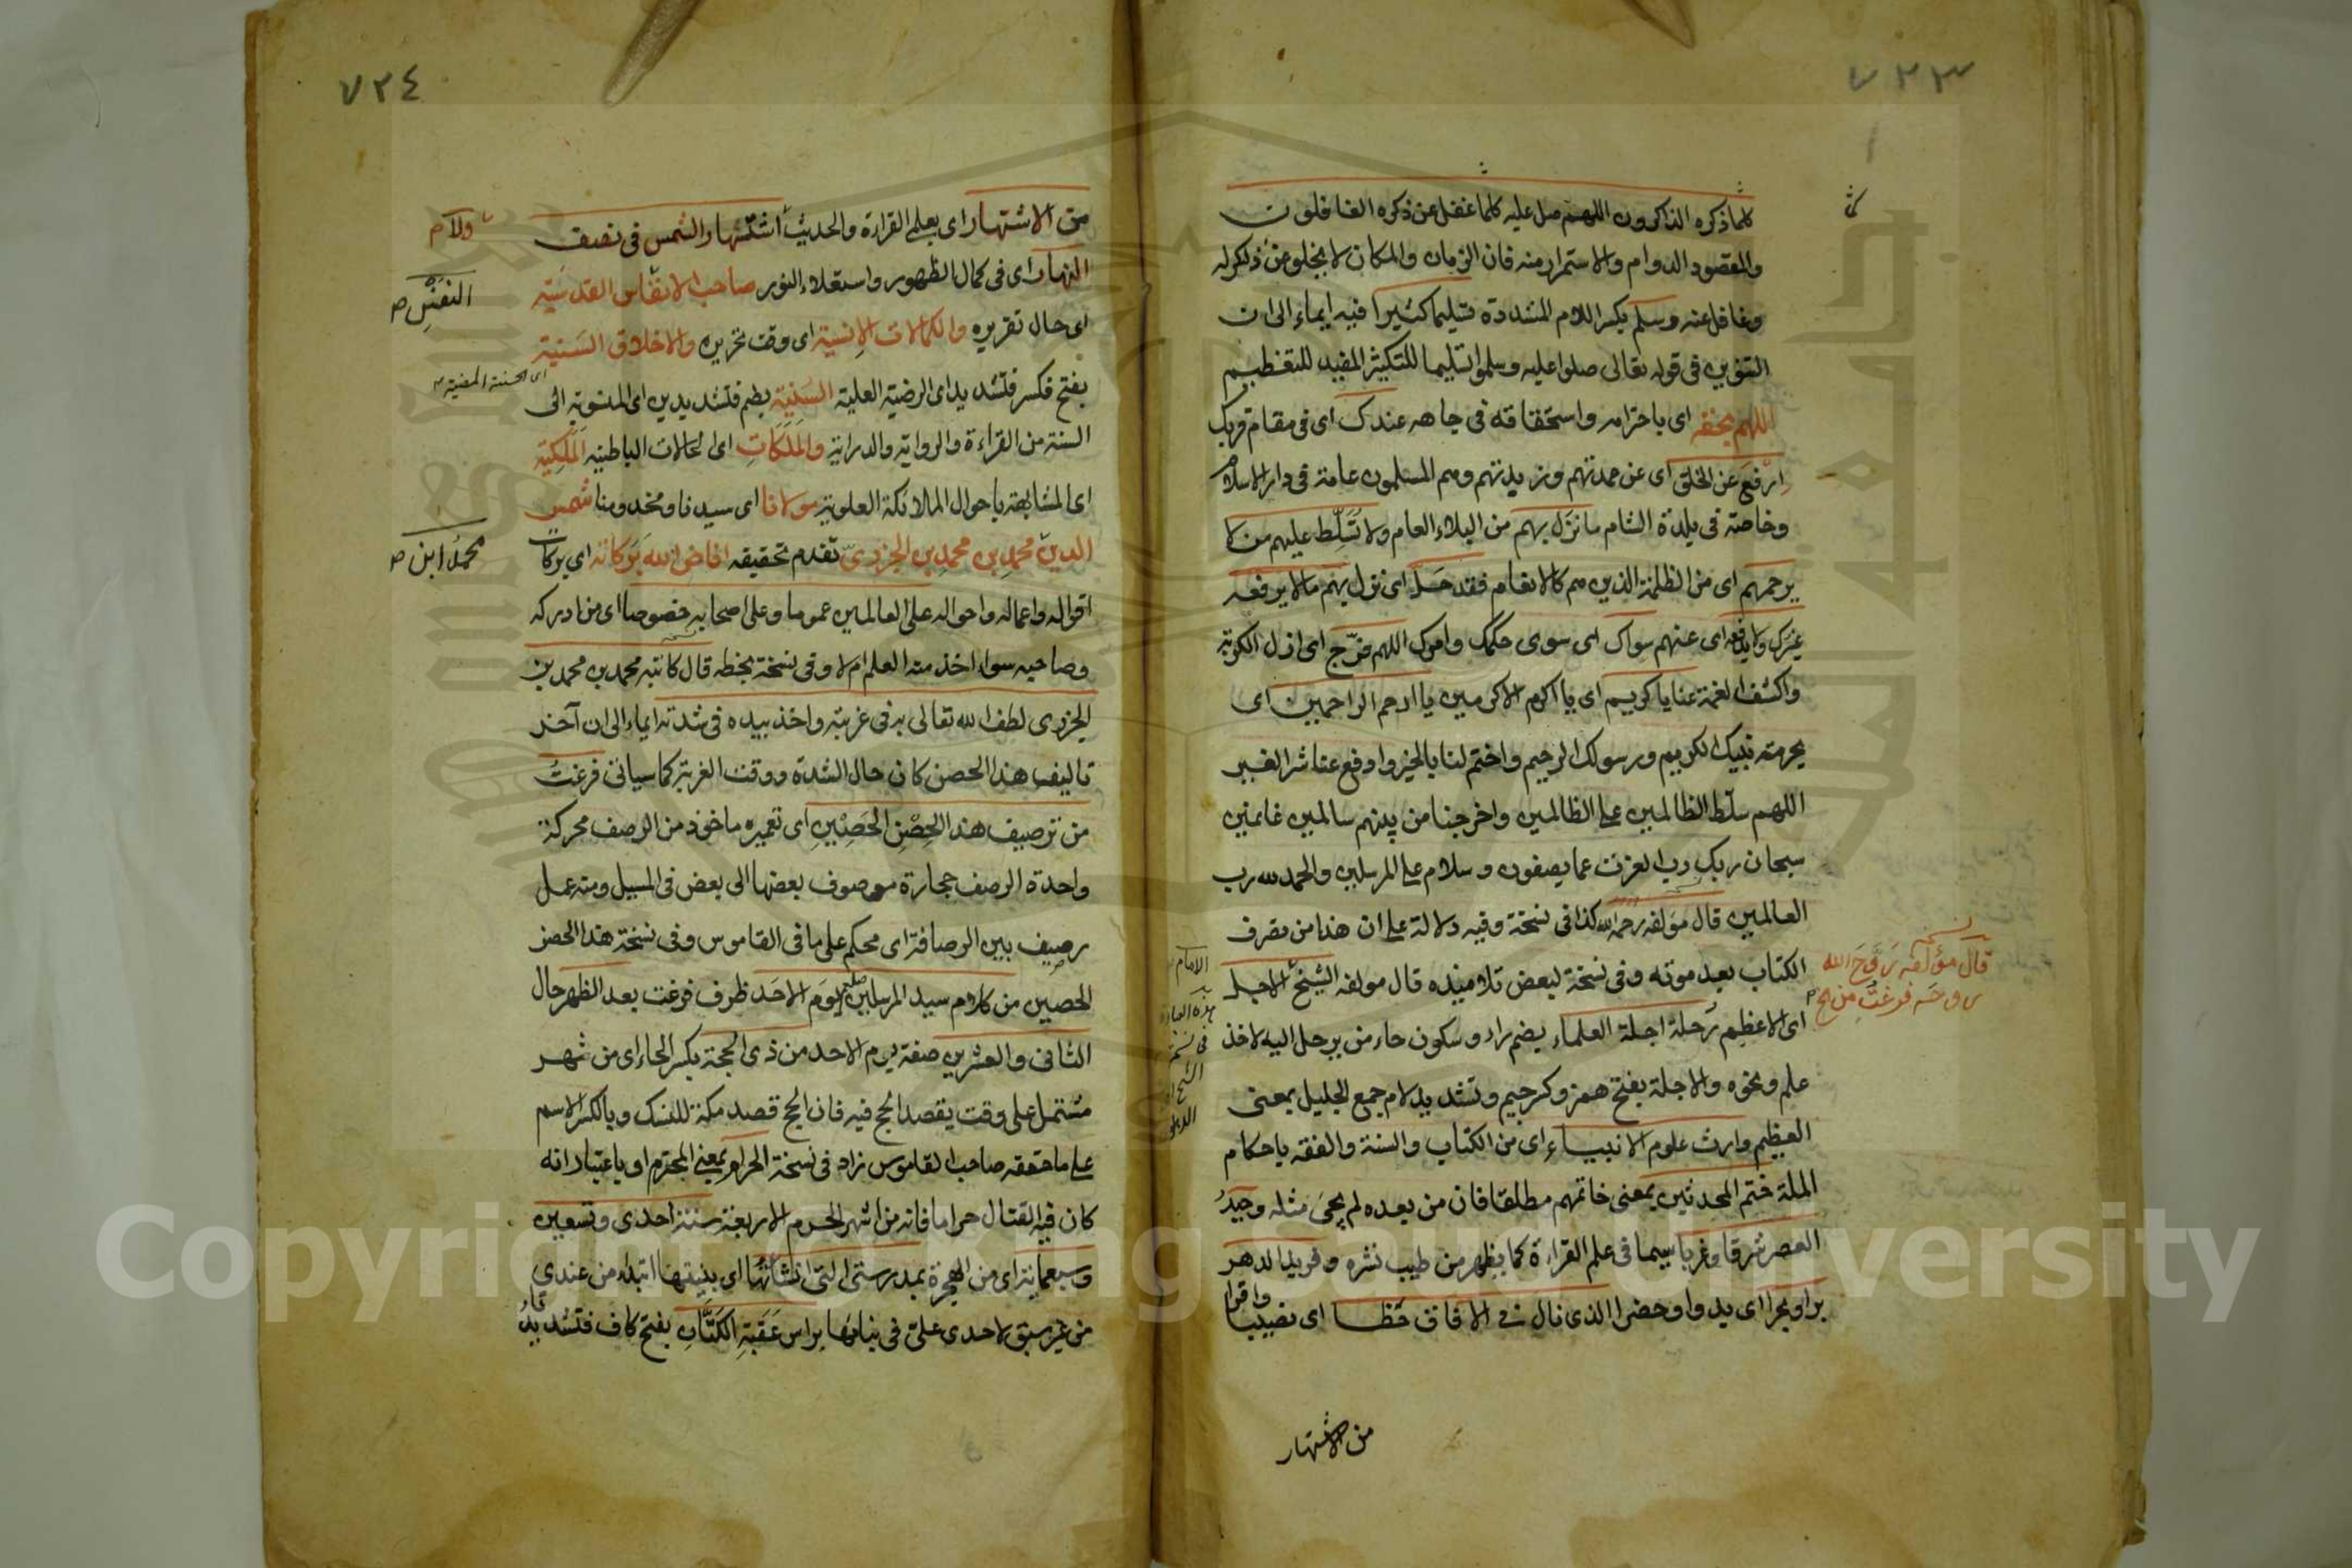 ٧٢٣
كلما ذكره الذاكرون اللهم صل عليه كلما غفل عن ذكره الغافلون
والمقصود الدوام والاستمرار منه فان الزمان والمكان لا يخلو عن ذاكر له
وغافل عنه وسلم بكسر اللام المشددة تسليما كثيرا فيه ايماء الى ان
التنوين في قوله تعالى صلوا عليه وسلموا تسليما للتكثير المفيد للتعظيم
اللهم بحقه اى باحترامه واستحقاقه في جاهه عندك اى في مقام قربك
ارفع عن الخلق اى عن عمدتهم وزبدتهم وهم المسلمون عامة في دار الاسلام
وخاصة في بلدة الشام ما نزل بهم من البلاء العام ولا تسلط عليهم من لا
يرحمهم اى من الظلمة الذين هم كالانعام فقد حل اى نزل بهم ما لا يرفعه
غيرك ولا يدفعه اى عنهم سواك اى سوى حكمك وامرك اللهم فرج اى ازل الكربة
واكشف الغمة عنا يا كريم اى يا اكرم الاكرمين يا ارحم الراحمين اى
بحرمة نبيك الكريم ورسولك الرحيم واختم لنا بالخير وادفع عنا شر الغير
اللهم سلط الظالمين على الظالمين واخرجنا من بينهم سالمين غانمين
سبحان ربك رب العزت عما يصفون وسلام على المرسلين والحمد لله رب
العالمين قال مؤلفه رحمه الله كذا في نسخة وفيه دلالة على ان هذا من تصرف
الكتاب بعد موته وفي نسخة لبعض تلاميذه قال مولفه الشيخ الاجل
اى الاعظم رحلة اجلة العلماء بضم راء وسكون حاء من يرحل اليه لاخذ
علم ونحوه والاجلة بفتح همز وكسر جيم وتشديد لام جمع الجليل بمعنى
العظيم وارث علوم الانبياء اى من الكتاب والسنة والفقه باحكام
الملة ختم المحدثين بمعنى خاتمهم مطلقا فان من بعده لم يجئ مثله وحيد
العصر شرقا وغربا سيما في علم القراءة كما يظهر من طيب نشره وفريد الدهر
برا وبحرا اى بدوا وحضرا الذى نال في الافاق حظا اى نصيبا وافرا
من الاشتهار
نسخه
قال مؤلفه روح الله
روحه فرغت من الخ
الامام
هذه العبارة
في نسخة
٧٢٤
من الاشتهار اى بعلم القراءة والحديث اشتهار الشمس في نصف
النهار اى في كمال الظهور واستعلاء النور صاحب الانفاس القدسية
اى حال تقريره والكمالات الانسية اى وقت تحريره والاخلاق السنية
بفتح فكسر فتشديد اى الرضية العلية السنية بضم فتشديدين اى المنسوبة الى
السنة من القراءة والرواية والدراية والملكات اى الحالات الباطنية الملكية
اى المشابهة باحوال الملائكة العلوية مولانا اى سيدنا ومخدومنا شمس
الدين محمد بن محمد بن الجزرى تقدم تحقيقه افاض الله بركاته اى بركات
اقواله واعماله واحواله على العالمين عموما وعلى اصحابه خصوصا اى من ادركه
وصاحبه سواء اخذ منه العلم ام لا وفي نسخة بخطه قال كاتبه محمد بن محمد بن
الجزرى لطف الله تعالى به في غربته واخذ بيده في شدته ايماء الى ان آخر
تاليف هذا الحصن كان حال الشدة ووقت الغربة كما سياتى فرغت
من ترصيف هذا الحصن الحصين اى تعميره ماخوذ من الرصف محركة
واحدة الرصف حجارة مرصوف بعضها الى بعض في المسيل ومنه عمل
رصيف بين الرصافة اى محكم على ما في القاموس وفي نسخة هذا الحصن
الحصين من كلام سيد المرسلين صلعم يوم الاحد ظرف فرغت بعد الظهر حال
الثانى والعشرين صفة يوم الاحد من ذى الحجة بكسر الحاء اى من شهر
مشتمل على وقت يقصد الحج فيه فان الحج قصد مكة للنسك وبالكسر الاسم
على ما حققه صاحب القاموس زاد في نسخة الحرام بمعنى المحترم او باعتبار انه
كان فيه القتال حراما فانه من اشهر الحرم الاربعة سنة احدى وتسعين
وسبعمائة اى من الهجرة بمدرستى التى انشاتها اى بنيتها ابتداء من عندى
من غير سبق لاحدى على في بنائها براس عقبة الكتان بفتح كاف فتشديد تاء
ولام
النفيس ص
اى الحسنة المضيئة
محمد ابن ص
Copyright © King Saud University